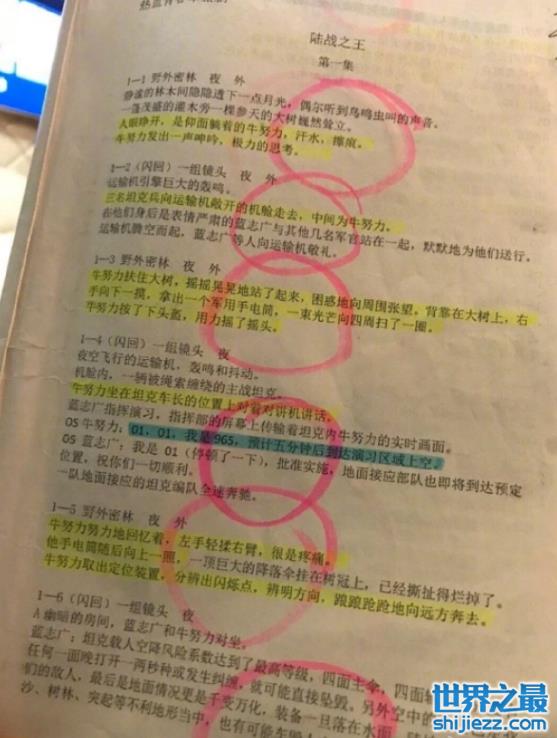 陆战之王
第一集
1—1 野外密林 夜 外
静谧的林木间隐隐透下一点月光，偶尔听到鸟鸣虫叫的声音。
一簇茂盛的灌木旁一棵参天的大树巍然耸立。
人眼睁开，是仰面躺着的牛努力，汗水，擦痕。
牛努力发出一声呻吟，极力的思考。
1—2（闪回）一组镜头 夜 外
运输机引擎巨大的轰鸣。
三名坦克兵向运输机敞开的机舱走去，中间为牛努力。
在他们身后是表情严肃的蓝志广与其他几名军官站在一起，默默地为他们送行。
运输机腾空而起，蓝志广等人向运输机敬礼。
1—3 野外密林 夜 外
牛努力扶住大树，摇摇晃晃地站了起来，困惑地向周围张望。背靠在大树上，右
手向下一摸，拿出一个军用手电筒，一束光芒向四周扫了一圈。
牛努力按了下头盔，用力摇了摇头。
1—4（闪回）一组镜头 夜
夜空飞行的运输机，轰鸣和抖动。
机舱内，一辆被绳索缠绕的主战坦克。
牛努力坐在坦克车长的位置上对着对讲机讲话。
蓝志广指挥演习，指挥部的屏幕上传输着坦克内牛努力的实时画面。
OS 牛努力：01，01，我是965，预计五分钟后到达演习区域上空。
OS 蓝志广：我是 01（停顿了一下），批准实施，地面接应部队也即将到达预定
位置，祝你们一切顺利。
一队地面接应的坦克编队全速奔驰。
1—5 野外密林 夜 外
牛努力努力地回忆着，左手轻揉右臂，很是疼痛。
他手电筒随后向上一照，一顶巨大的降落伞挂在树冠上，已经撕扯得烂掉了。
牛努力取出定位装置，分辨出闪烁点，辨明方向，踉踉跄跄地向远方奔去。
1—6（闪回）一组镜头 夜
A 幽暗的房间，蓝志广和牛努力对坐。
蓝志广：坦克载人空降风险系数达到了最高等级，四面主伞，四面
任何一面晚打开一两秒种或发生纠缠，就可能直接坠毁。另外空中的
们的敌人，最后是地面情况更是千变万化，装备一旦落在水面
沙、树林、突起等不利地形当中，也有可能
世界之最
shijiezz.com